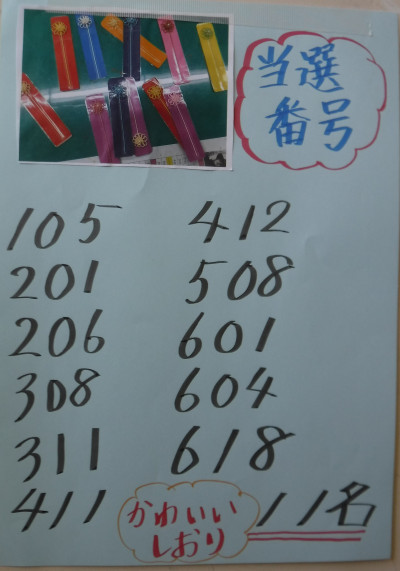 当選
番号
105
201
206
308
311
411
412
508
601
604
618
かわいい
しおり
11名